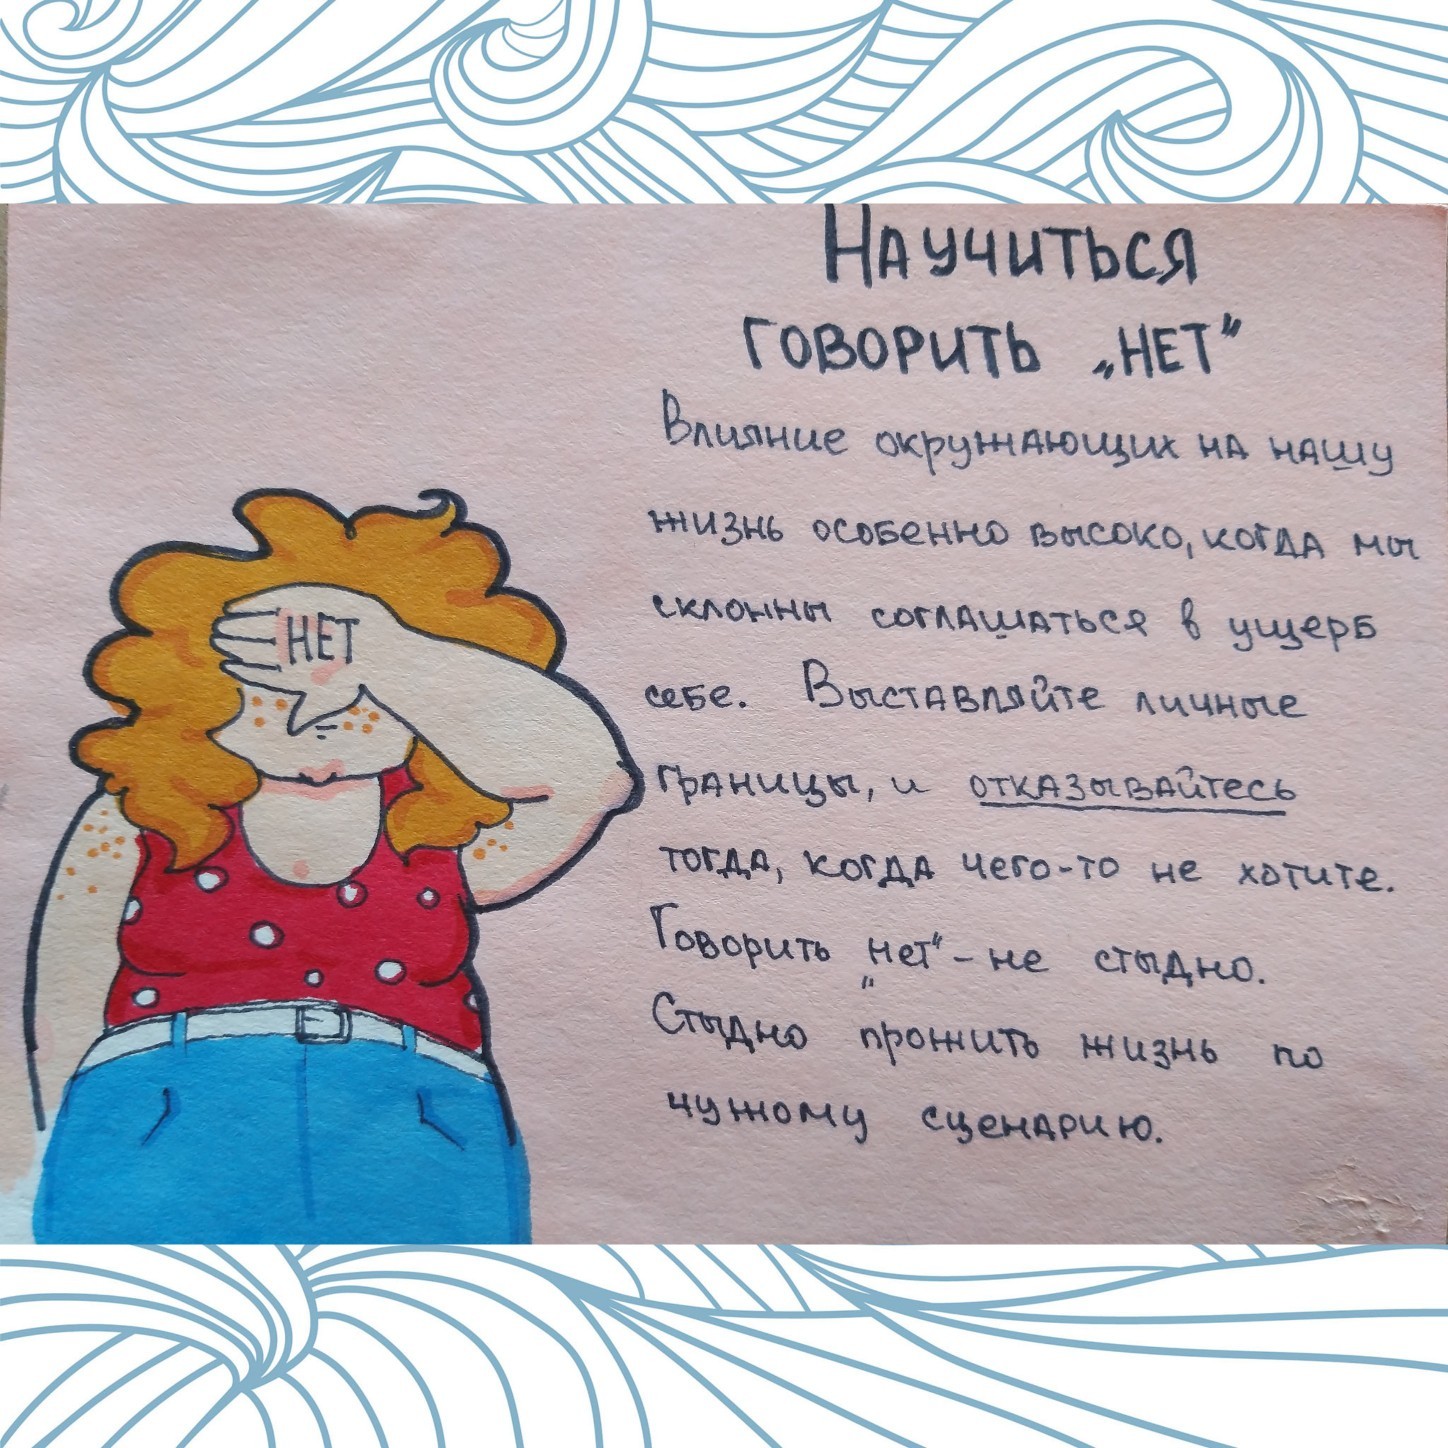 Научиться
говорить „нет“
Влияние окружающих на нашу
жизнь особенно высоко, когда мы
склонны соглашаться в ущерб
себе. Выставляйте личные
границы, и отказывайтесь
тогда, когда чего-то не хотите.
Говорить „нет“ - не стыдно.
Стыдно прожить жизнь по
чужому сценарию.
НЕТ